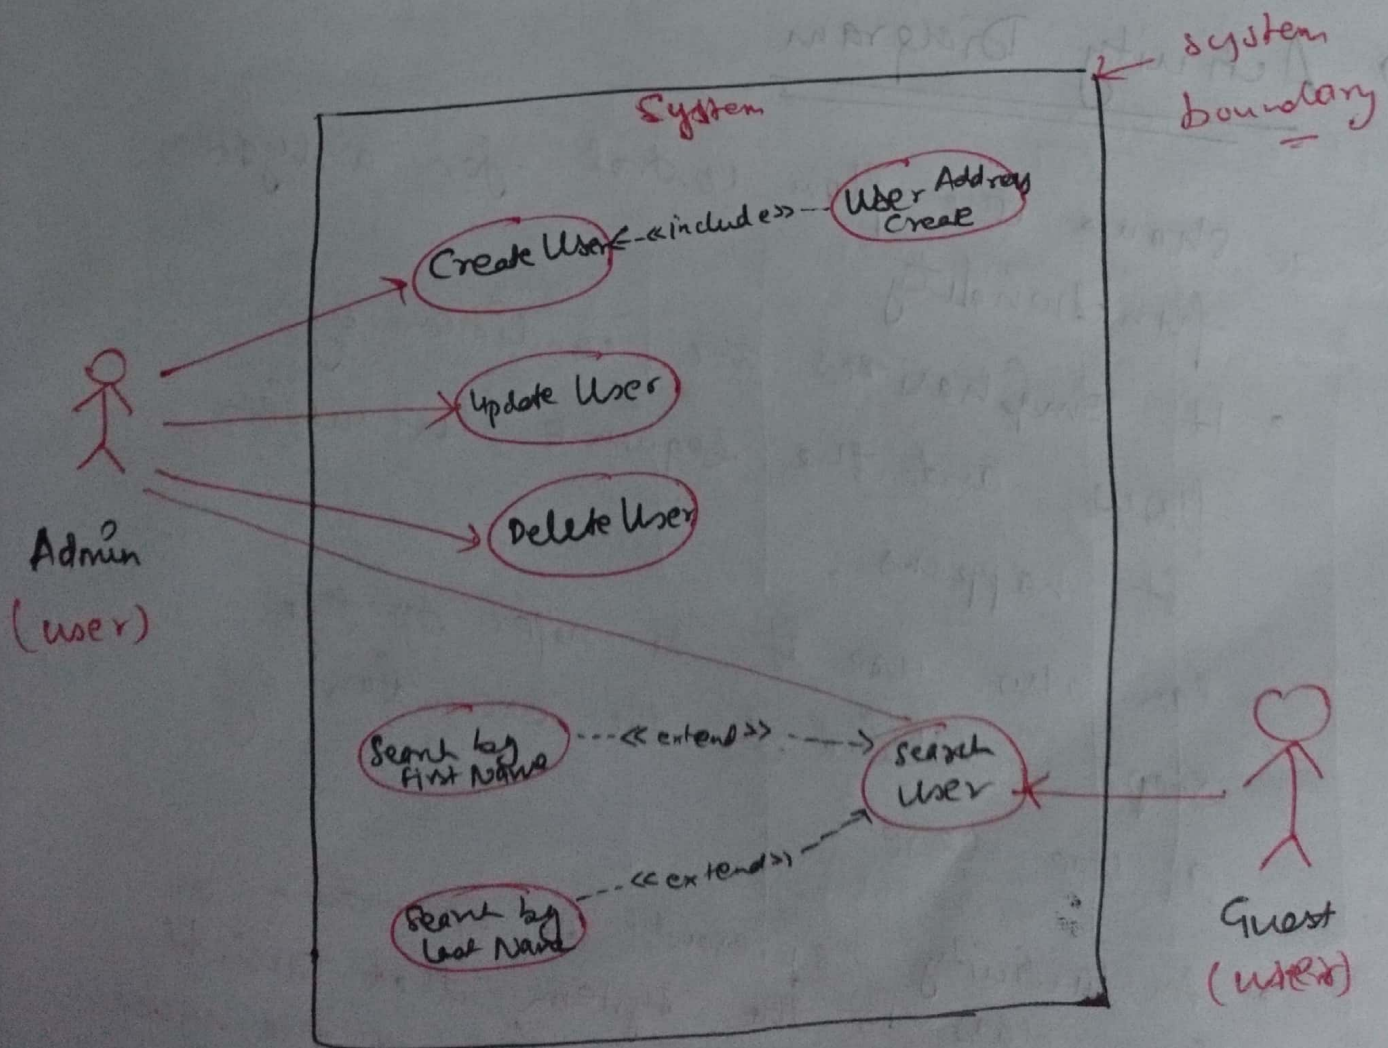 system
boundary
System
User Address
Create
Create User
<<include>>
Update User
Delete User
Admin
(user)
Search by
First Name
<<extend>>
Search
User
<<extend>>
Search by
Last Name
Guest
(user)